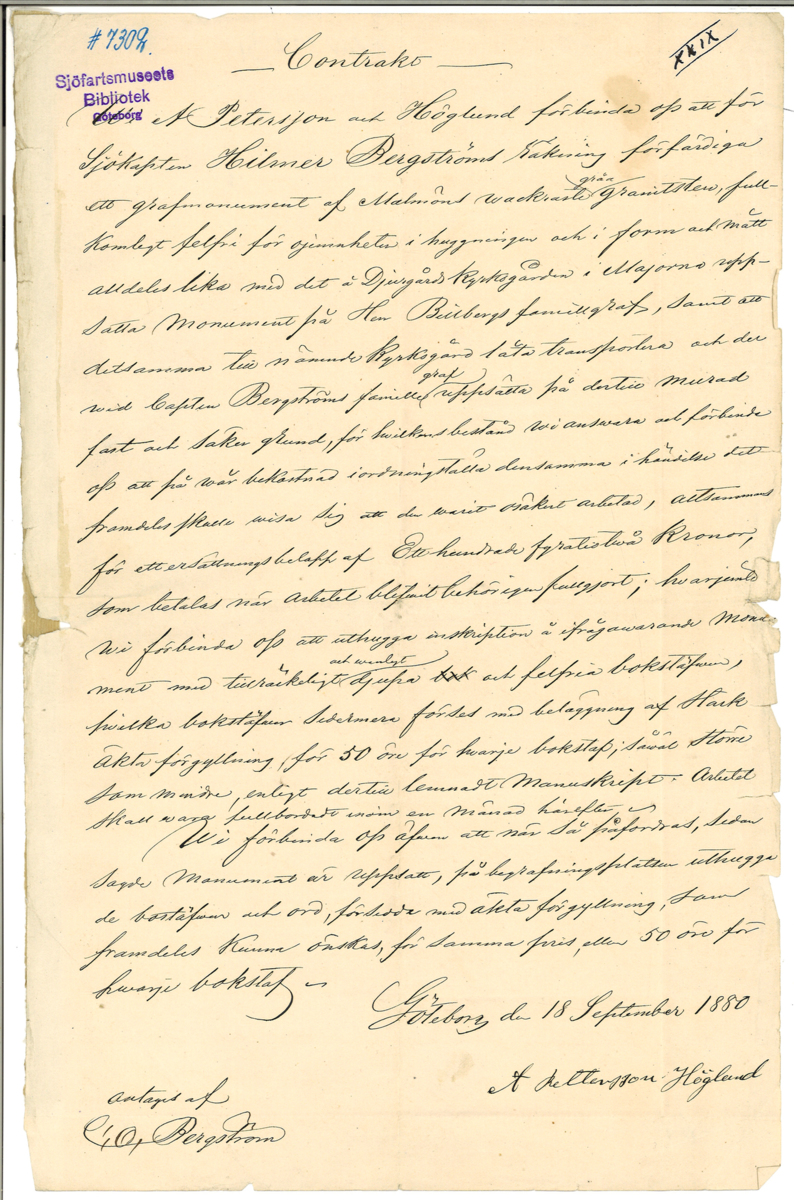 # 7302.
XXIX
Contrakt
Sjöfartsmuseets
Bibliotek
Göteborg
A Petersson och Höglund förbinda oss att för
Sjökapten Hilmer Bergströms räkning förfärdiga
ett grafmonument af Malmöns wackraste gråa granitsten, full-
komligt felfri för ojemnheter i huggningen och i form och mått
alldeles lika med det å Djurgårds Kyrkogården i Majorna upp-
satta Monument på Herr Billbergs familjgraf, samt att
detsamma till nämnde Kyrkogård låta transportera och der
wid Capten Bergströms famille graf uppsätta på dertill murad
fast och säker grund, för hwilkens bestånd wi answara och förbinda
oss att på wår bekostnad iordningställa densamma i händelse det
framdeles skulle wisa sig att den warit osäkert arbetad, alltsammans
för ett ersättningsbelopp af Ett hundrade fyratiotwå Kronor,
som betalas när Arbetet blifwit behörigen fullgjort; hwarjemte
wi förbinda oss att uthugga inskription å ifrågawarande Monu-
ment med tillräckligt djupa och wanligt och felfria bokstäfwer,
hwilka bokstäfwer sedermera förses med beläggning af Stark
äkta förgyllning, för 50 öre för hwarje bokstaf; såwäl större
som mindre, enligt dertill lemnadt Manuskript. Arbetet
skall wara fullbordadt inom en månad härefter.
Wi förbinda oss äfwen att när så påfordras, sedan
sagde Monument är uppsatt, på begrafningsplatsen uthugga
de bostäfwer och ord, försedda med äkta förgyllning, som
framdeles kunna önskas, för samma pris, eller 50 öre för
hwarje bokstaf
Göteborg den 18 September 1880
A Pettersson Höglund
antages af
Bergström